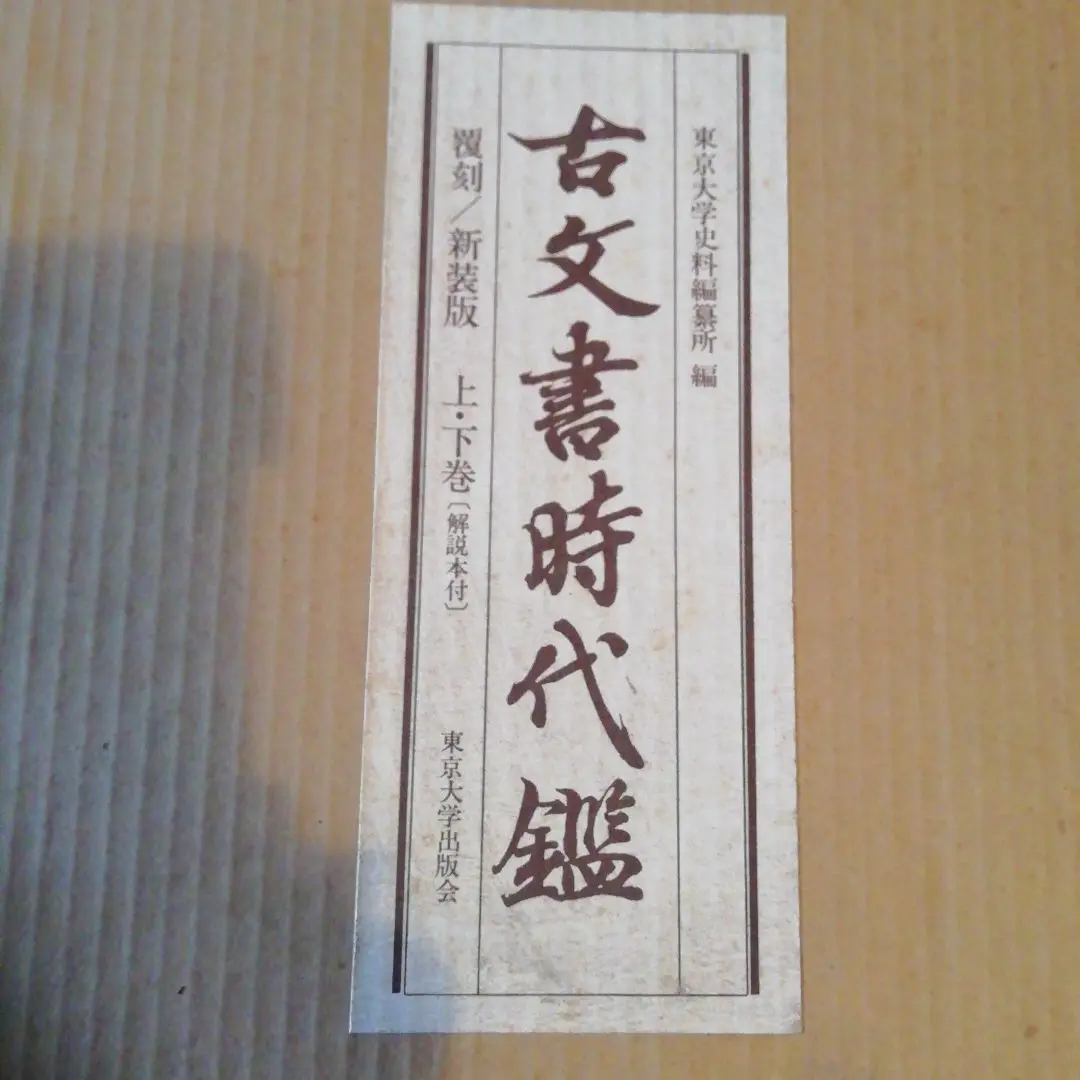 東京大学史料編纂所 編
古文書時代鑑
覆刻／新装版 上・下巻〔解説本付〕
東京大学出版会